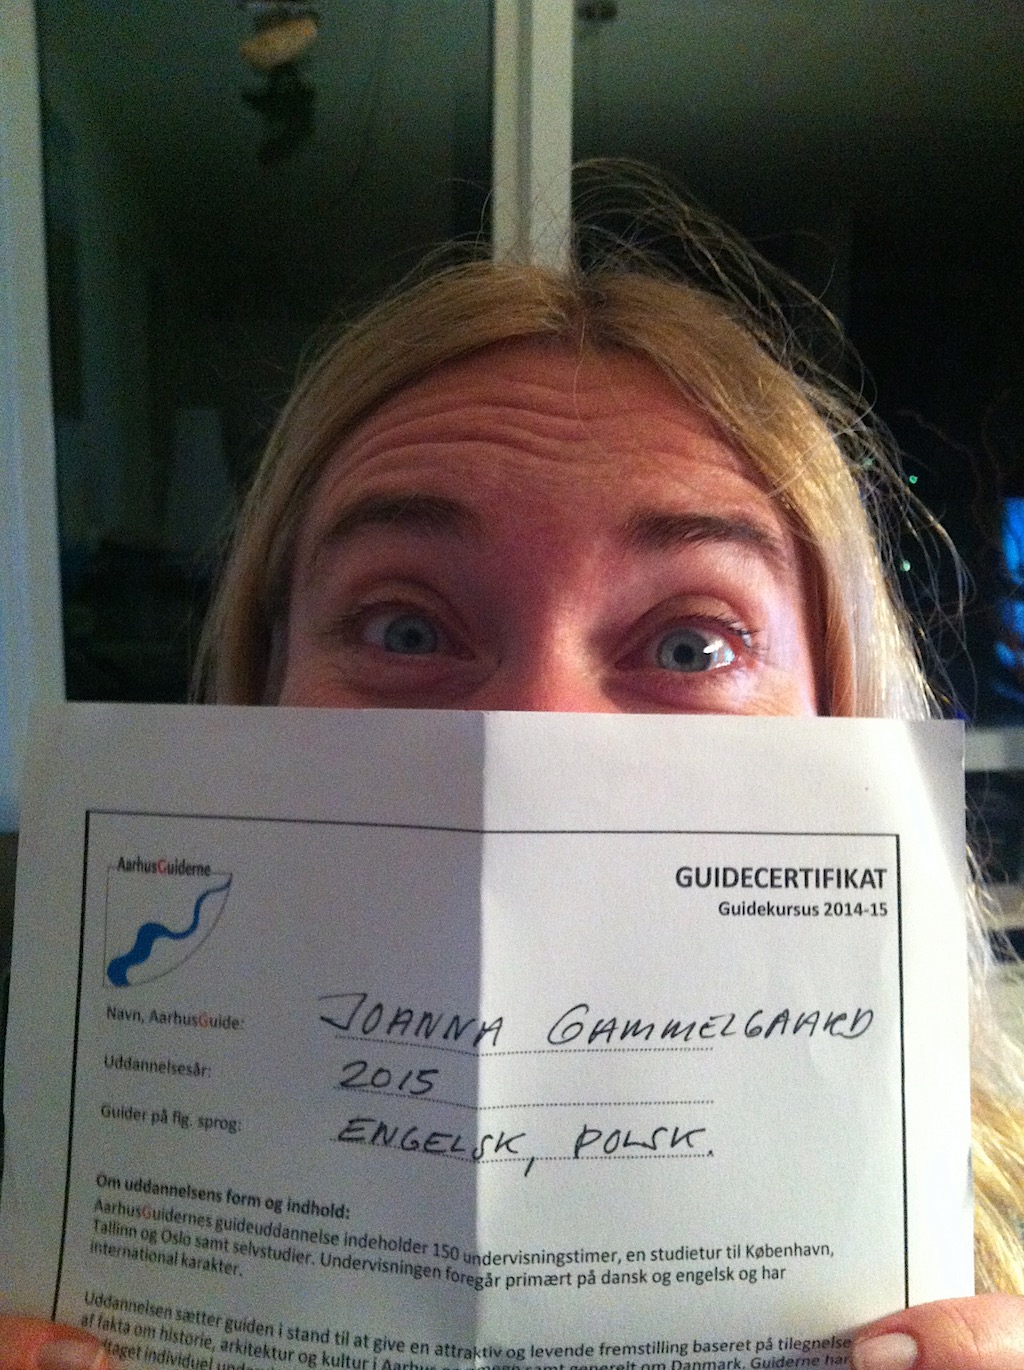 AarhusGuiderne
GUIDECERTIFIKAT
Guidekursus 2014-15
Navn, AarhusGuide: JOANNA GAMMELGAARD
Uddannelsesår: 2015
Guider på flg. sprog: ENGELSK, POLSK.
Om uddannelsens form og indhold:
AarhusGuidernes guideuddannelse indeholder 150 undervisningstimer, en studietur til København,
Tallinn og Oslo samt selvstudier. Undervisningen foregår primært på dansk og engelsk og har
international karakter.
Uddannelsen sætter guiden i stand til at give en attraktiv og levende fremstilling baseret på tilegnelse
af fakta om historie, arkitektur og kultur i Aarhus samt generelt om Danmark. Guiderne har
individuel